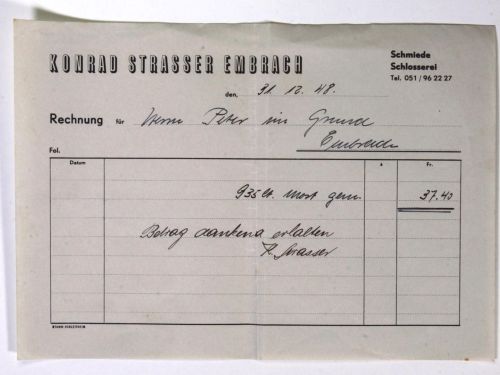 KONRAD STRASSER EMBRACH
Schmiede
Schlosserei
Tel. 051 / 96 22 27
den, 31. 12. 48.
Rechnung für Herrn Peter im Grund
Embrach
Fol.
Datum à Fr.
935 lt. Most gem. 37.40
Betrag dankend erhalten
K. Strasser